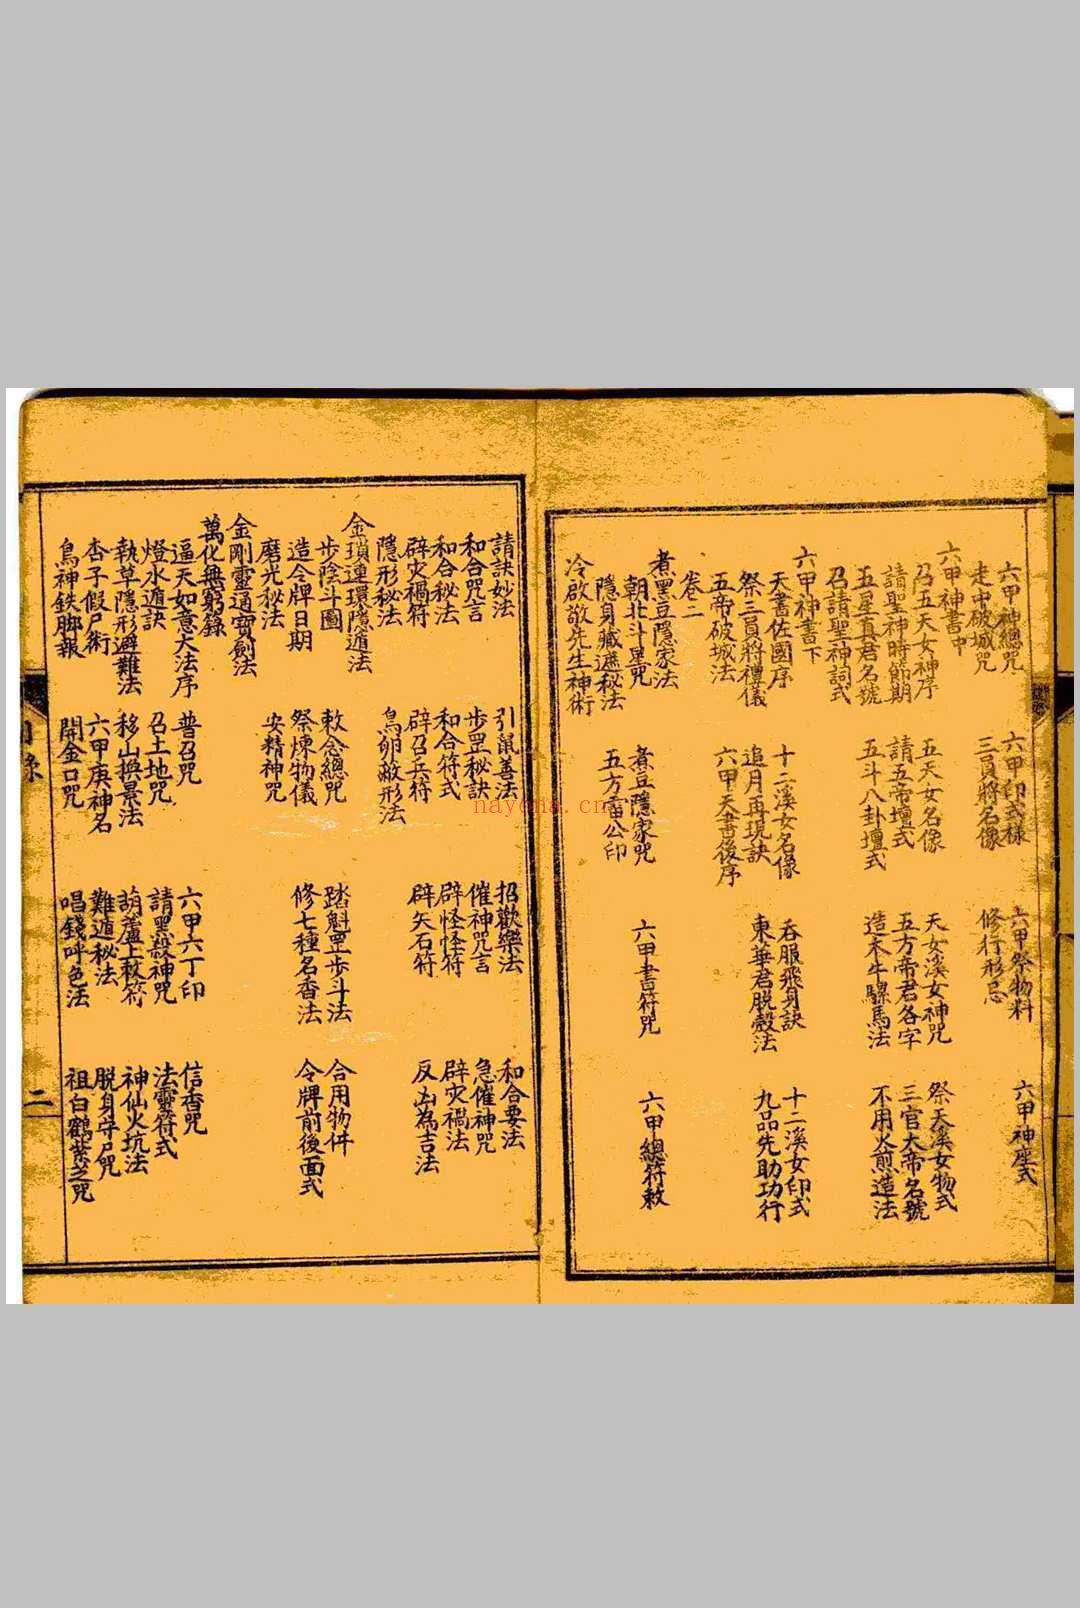 六甲神總咒　六甲印式樣　六甲祭物料　六甲神座式
走中破城咒　三員將名像　修行形忌
六甲神書中
召五天女神序　五天女名像　天女溪女神咒　祭天溪女物式
請聖神時節期　請五帝壇式　五方帝君各字　三官大帝名號
五星真君名號　五斗八卦壇式　造木牛騾馬法　不用火煎造法
召請聖神詞式
六甲神書下
天書佐國序　十二溪女名像　吞服飛身訣　十二溪女印式
祭三員將禮儀　追月再現訣　東華君脱殼法　九品先助功行
五帝破城法　六甲天書後序
卷二
煮黑豆隱家法
朝北斗罡咒　煮豆隱家咒　六甲書符咒　六甲總符敕
隱身藏遮秘法　五方雷公印
冷啟敬先生神術
請訣妙法　引鼠善法　招歡樂法　和合要法
和合咒言　步罡秘訣　催神咒言　急催神咒
和合秘法　和合符式　辟怪怪符　辟灾禍法
辟灾禍符　辟召兵符　辟矢石符　反凶為吉法
隱形秘法　鳥卵敵形法
金瑣連環隱遁法
步陰斗圖　敕念總咒　踏魁罡步斗法　合用物件
造令牌日期　祭煉物儀　修七種名香法　令牌前後面式
磨光秘法　安精神咒
金剛靈通寶劍法
萬化無窮錄
逼天如意大法序　普召咒　六甲六丁印　信香咒
燈水遁訣　召土地咒　請黑殺神咒　法靈符式
執草隱形避難法　移山換景法　葫蘆上敕符　神仙火坑法
杏子假尸術　六甲庚神名　難遁秘法　脱身守尸咒
鳥神鉄脚報　開金口咒　唱錢呼色法　祖白鶴紫芝咒
目錄
二
nayona.cn